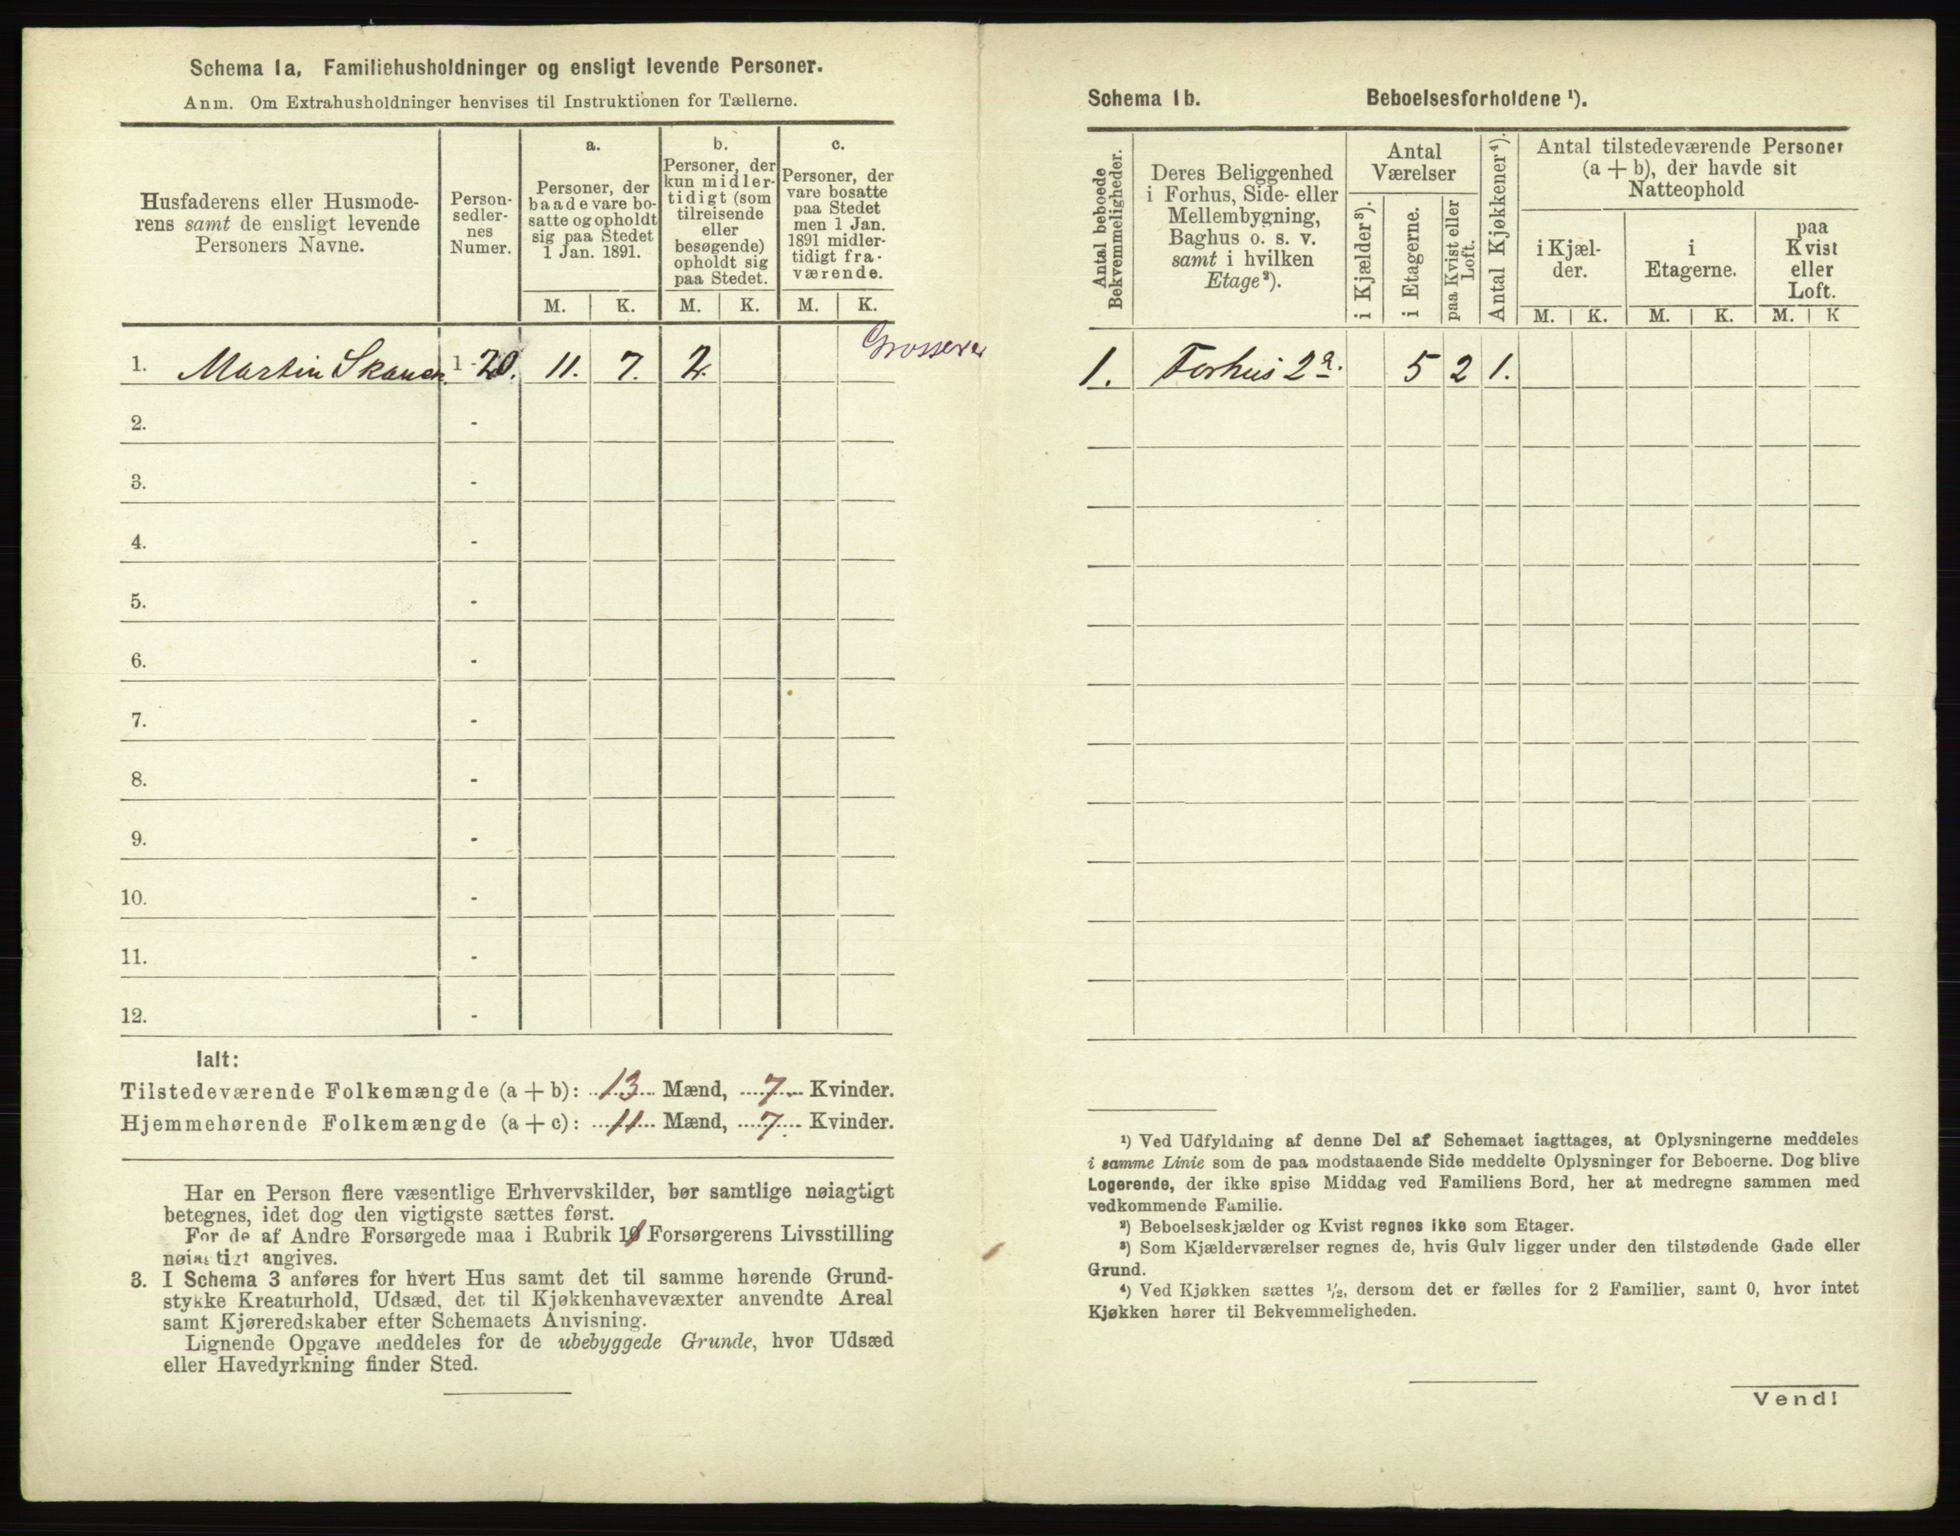 Schema 1a, Familiehusholdninger og ensligt levende Personer.
Anm. Om Extrahusholdninger henvises til Instruktionen for Tællerne.
Husfaderens eller Husmode-
rens samt de ensligt levende
Personers Navne.
Person-
sedler-
nes
Numer.
a.
Personer, der
baade vare bo-
satte og opholdt
sig paa Stedet
1 Jan. 1891.
b.
Personer, der
kun midler-
tidigt (som
tilreisende
eller
besøgende)
opholdt sig
paa Stedet.
c.
Personer, der
vare bosatte
paa Stedet
men 1 Jan.
1891 midler-
tidigt fra-
værende.
M. K. M. K. M. K.
Grosserer
1. Martin Skancke 1 - 20. 11. 7. 2.
2. -
3. -
4. -
5. -
6. -
7. -
8. -
9. -
10. -
11. -
12. -
Ialt:
Tilstedeværende Folkemængde (a + b): 13 Mænd, 7 Kvinder.
Hjemmehørende Folkemængde (a + c): 11 Mænd, 7 Kvinder.
Har en Person flere væsentlige Erhvervskilder, bør samtlige nøiagtigt
betegnes, idet dog den vigtigste sættes først.
For de af Andre Forsørgede maa i Rubrik 10 Forsørgerens Livsstilling
nøiagtigt angives.
3. I Schema 3 anføres for hvert Hus samt det til samme hørende Grund-
stykke Kreaturhold, Udsæd, det til Kjøkkenhavevæxter anvendte Areal
samt Kjøreredskaber efter Schemaets Anvisning.
Lignende Opgave meddeles for de ubebyggede Grunde, hvor Udsæd
eller Havedyrkning finder Sted.
Schema 1b. Beboelsesforholdene ¹).
Antal beboede
Bekvemmeligheder.
Deres Beliggenhed
i Forhus, Side- eller
Mellembygning,
Baghus o. s. v.
samt i hvilken
Etage²).
Antal
Værelser
i Kjælder³).
i Etagerne.
paa Kvist eller
Loft.
Antal Kjøkkener⁴).
Antal tilstedeværende Personer
(a + b), der havde sit
Natteophold
i Kjæl-
der.
i
Etagerne.
paa
Kvist
eller
Loft.
M. K. M. K. M. K
1. Forhus 2a. 5 2 1.
¹) Ved Udfyldning af denne Del af Schemaet iagttages, at Oplysningerne meddeles
i samme Linie som de paa modstaaende Side meddelte Oplysninger for Beboerne. Dog blive
Logerende, der ikke spise Middag ved Familiens Bord, her at medregne sammen med
vedkommende Familie.
²) Beboelseskjælder og Kvist regnes ikke som Etager.
³) Som Kjælderværelser regnes de, hvis Gulv ligger under den tilstødende Gade eller
Grund.
⁴) Ved Kjøkken sættes ½, dersom det er fælles for 2 Familier, samt 0, hvor intet
Kjøkken hører til Bekvemmeligheden.
Vend!